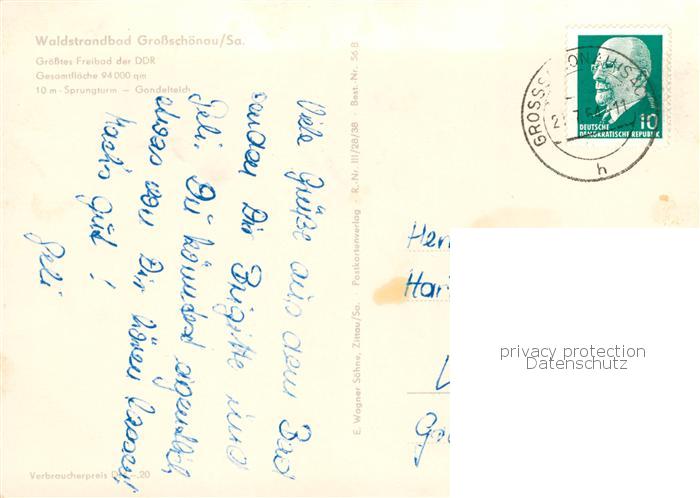 Waldstrandbad Großschönau/Sa.
Größtes Freibad der DDR
Gesamtfläche 94 000 qm
10 m - Sprungturm — Gondelteich
Viele Grüße aus dem Bad
senden Dir Brigitte und
Geli. Du könntest eigentlich
etwas von Dir hören lassen!
Machs gut!
Geli
Verbraucherpreis
E. Wagner Söhne, Zittau/Sa. · Postkartenverlag · R.-Nr. III/28/38 · Best.-Nr. 56 B
GROSSS
h
10
DEUTSCHE
DEMOKRATISCHE REPUBLIK
privacy protection
Datenschutz